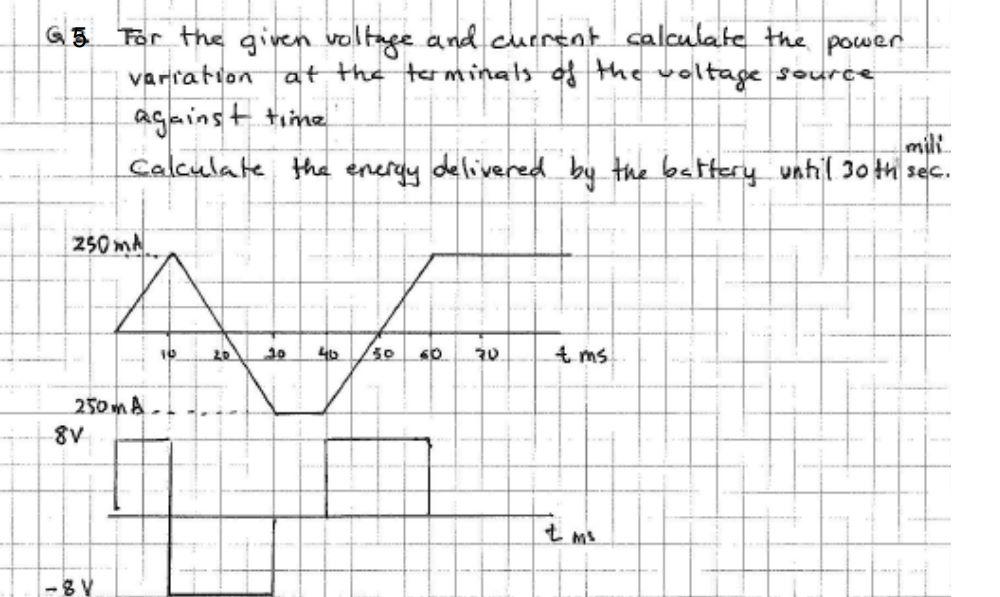 Q5 For the given voltage and current calculate the power
variation at the terminals of the voltage source
against time
mili
Calculate the energy delivered by the battery until 30th sec.
250mA
10 20 30 40 50 60 70 t ms
250mA
8V
t ms
-8V